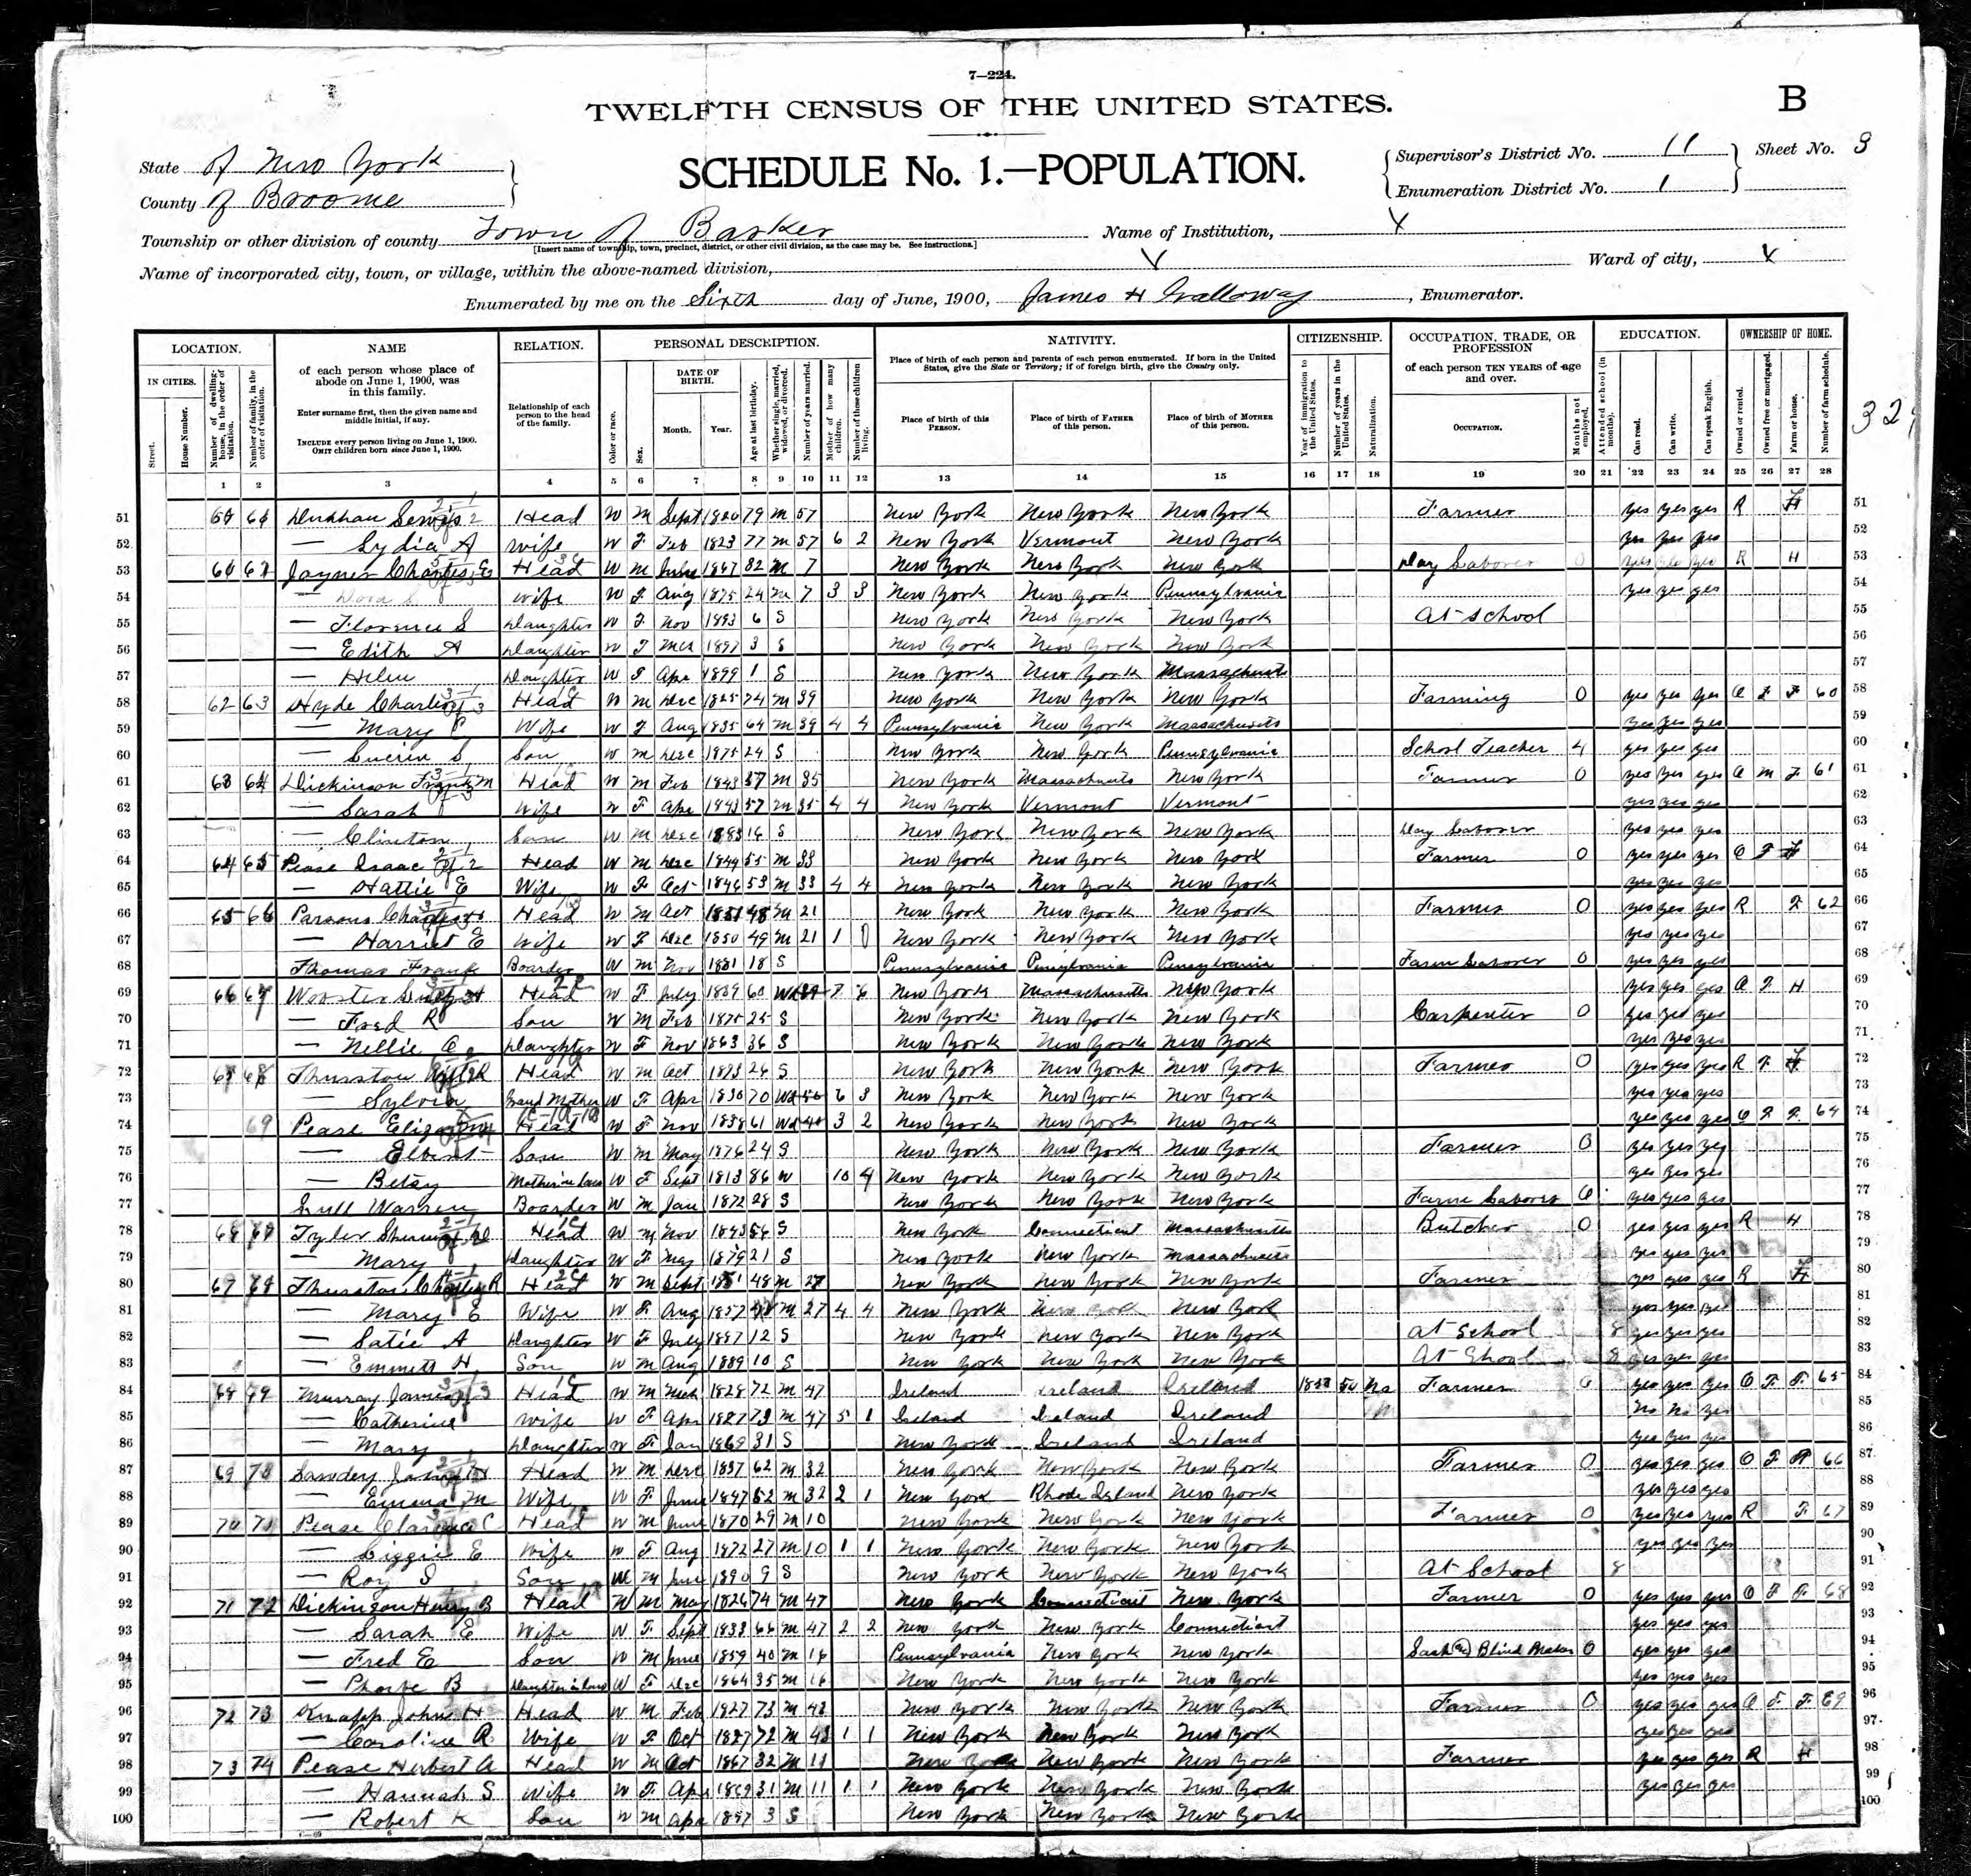 7—224.
TWELFTH CENSUS OF THE UNITED STATES.
B
State of New York
SCHEDULE No. 1.—POPULATION.
Supervisor's District No. 11
Sheet No. 3
County of Broome
Enumeration District No. 1
Township or other division of county Town of Barker
Name of Institution, X
[Insert name of township, town, precinct, district, or other civil division, as the case may be. See instructions.]
Name of incorporated city, town, or village, within the above-named division, X
Ward of city, X
Enumerated by me on the Sixth day of June, 1900, James H Galloway, Enumerator.
LOCATION. NAME RELATION. PERSONAL DESCRIPTION. NATIVITY. CITIZENSHIP. OCCUPATION, TRADE, OR PROFESSION EDUCATION. OWNERSHIP OF HOME.
IN CITIES. Street. House Number. Number of dwelling-house, in the order of visitation. Number of family, in the order of visitation.
of each person whose place of abode on June 1, 1900, was in this family.
Enter surname first, then the given name and middle initial, if any.
INCLUDE every person living on June 1, 1900. OMIT children born since June 1, 1900.
Relationship of each person to the head of the family.
Color or race. Sex. DATE OF BIRTH. Month. Year. Age at last birthday. Whether single, married, widowed, or divorced. Number of years married. Mother of how many children. Number of these children living.
Place of birth of each person and parents of each person enumerated. If born in the United States, give the State or Territory; if of foreign birth, give the Country only.
Place of birth of this PERSON. Place of birth of FATHER of this person. Place of birth of MOTHER of this person.
Year of immigration to the United States. Number of years in the United States. Naturalization.
of each person TEN YEARS of age and over.
OCCUPATION. Months not employed.
Attended school (in months). Can read. Can write. Can speak English.
Owned or rented. Owned free or mortgaged. Farm or house. Number of farm schedule.
1 2 3 4 5 6 7 8 9 10 11 12 13 14 15 16 17 18 19 20 21 22 23 24 25 26 27 28
51 Head W M Sept 79 M 57 New York New York New York Farmer yes yes yes R 51
52 — Lydia A Wife W F Feb 1823 77 M 57 6 2 New York Vermont New York yes yes yes 52
53 Joyner Charles E Head W M 1867 32 M 7 New York New York New York Day Laborer R H 53
54 — Dora Wife W F Aug 1875 24 M 7 3 3 New York New York Pennsylvania yes yes yes 54
55 — Florence S Daughter W F Nov 1893 6 S New York New York New York At School 55
56 — Edith A Daughter W F Mch 1897 3 S New York New York New York 56
57 — Helen Daughter W F Apr 1899 1 S New York New York Massachusetts 57
58 62 63 Hyde Charles Head W M Dec 1825 74 M 39 New York New York New York Farming 0 yes yes yes O F F 60 58
59 — Mary Wife W F Aug 1835 64 M 39 4 4 Pennsylvania New York Massachusetts yes yes yes 59
60 — Son W M Dec 1875 24 S New York New York Pennsylvania School Teacher 4 yes yes yes 60
61 63 64 Dickinson M Head W M Feb 1843 57 M 35 New York Massachusetts New York Farmer 0 yes yes yes O M F 61 61
62 — Sarah Wife W F Apr 1843 57 M 35 4 4 New York Vermont Vermont yes yes yes 62
63 — Clinton Son W M Dec 1883 16 S New York New York New York Day Laborer yes yes yes 63
64 64 65 Pease Isaac Head W M Dec 1844 55 M 33 New York New York New York Farmer 0 yes yes yes O F 64
65 — Hattie E Wife W F Oct 1846 53 M 33 4 4 New York New York New York yes yes yes 65
66 65 66 Parsons Charles H Head W M Oct 1851 48 M 21 New York New York New York Farmer 0 yes yes yes R F 62 66
67 — Harriet E Wife W F Dec 1850 49 M 21 1 0 New York New York New York yes yes yes 67
68 Thomas Frank Boarder W M Nov 1881 18 S Pennsylvania Pennsylvania Pennsylvania Farm Laborer 0 yes yes yes 68
69 66 67 Wooster Head W F July 1839 60 Wd 7 6 New York Massachusetts New York yes yes yes O F H 69
70 — Fred R Son W M Feb 1875 25 S New York New York New York Carpenter 0 yes yes yes 70
71 — Nellie C Daughter W F Nov 1863 36 S New York New York New York yes yes yes 71
72 Thurston R Head W M Oct 1873 26 S New York New York New York Farmer 0 yes yes yes R F 72
73 — Sylvia Grand Mother W F Apr 1830 70 Wd 6 3 New York New York New York yes yes yes 73
74 69 Pease Eliza M Head W F Nov 1838 61 Wd 3 2 New York New York New York yes yes yes O F F 64 74
75 — Elbert Son W M May 1876 24 S New York New York New York Farmer 0 yes yes yes 75
76 — Betsy Mother in law W F Sept 1813 86 W 10 4 New York New York New York yes yes yes 76
77 Lull Warren Boarder W M Jan 1872 28 S New York New York New York Farm Laborer 6 yes yes yes 77
78 Tyler Head W M Nov 1843 56 S New York Connecticut Massachusetts Butcher 0 yes yes yes R H 78
79 — Mary Daughter W F May 1879 21 S New York New York Massachusetts yes yes yes 79
80 67 Thurston Charles R Head W M Sept 1851 48 M 27 New York New York New York Farmer yes yes yes R 80
81 — Mary E Wife W F Aug 1857 M 27 4 4 New York New York New York yes yes yes 81
82 — Satie A Daughter W F July 1887 12 S New York New York New York At School 8 yes yes yes 82
83 — Emmett H Son W M Aug 1889 10 S New York New York New York At Shool 8 yes yes yes 83
84 68 69 Murray James Head W M Mch 1828 72 M 47 Ireland Ireland Ireland 50 Na Farmer 0 yes yes yes O F F 65 84
85 — Catherine Wife W F Apr 1827 73 M 47 5 1 Ireland Ireland Ireland No No yes 85
86 — Mary Daughter W F Jan 1869 31 S New York Ireland Ireland yes yes yes 86
87 69 70 H Head W M Dec 1837 62 M 32 New York New York New York Farmer 0 yes yes yes O F F 66 87
88 — Emma M Wife W F June 1847 52 M 32 2 1 New York Rhode Island New York yes yes yes 88
89 70 71 Pease Clarence C Head W M June 1870 29 M 10 New York New York New York Farmer 0 yes yes yes R F 67 89
90 — Liggie E Wife W F Aug 1872 27 M 10 1 1 New York New York New York yes yes yes 90
91 — Roy S Son W M June 1890 9 S New York New York New York At School 8 91
92 71 72 Dickinson Henry B Head W M May 1826 74 M 47 New York Connecticut New York Farmer 0 yes yes yes O F F 68 92
93 — Sarah E Wife W F Sept 1833 66 M 47 2 2 New York New York Connecticut yes yes yes 93
94 — Fred E Son W M June 1859 40 M 16 Pennsylvania New York New York Sash & Blind Maker 0 yes yes yes 94
95 — Phoebe B Daughter in law W F Dec 1864 35 M 16 New York New York New York yes yes yes 95
96 72 73 Knapp John H Head W M Feb 1827 73 M 48 New York New York New York Farmer 0 yes yes yes O F F 69 96
97 — Caroline R Wife W F Oct 1827 72 M 48 1 1 New York New York New York yes yes yes 97
98 73 74 Pease Herbert A Head W M Oct 1867 32 M 11 New York New York New York Farmer yes yes yes R H 98
99 — Hannah S Wife W F Apr 1869 31 M 11 1 1 New York New York New York yes yes yes 99
100 — Robert K Son W M Apr 1897 3 S New York New York New York 100